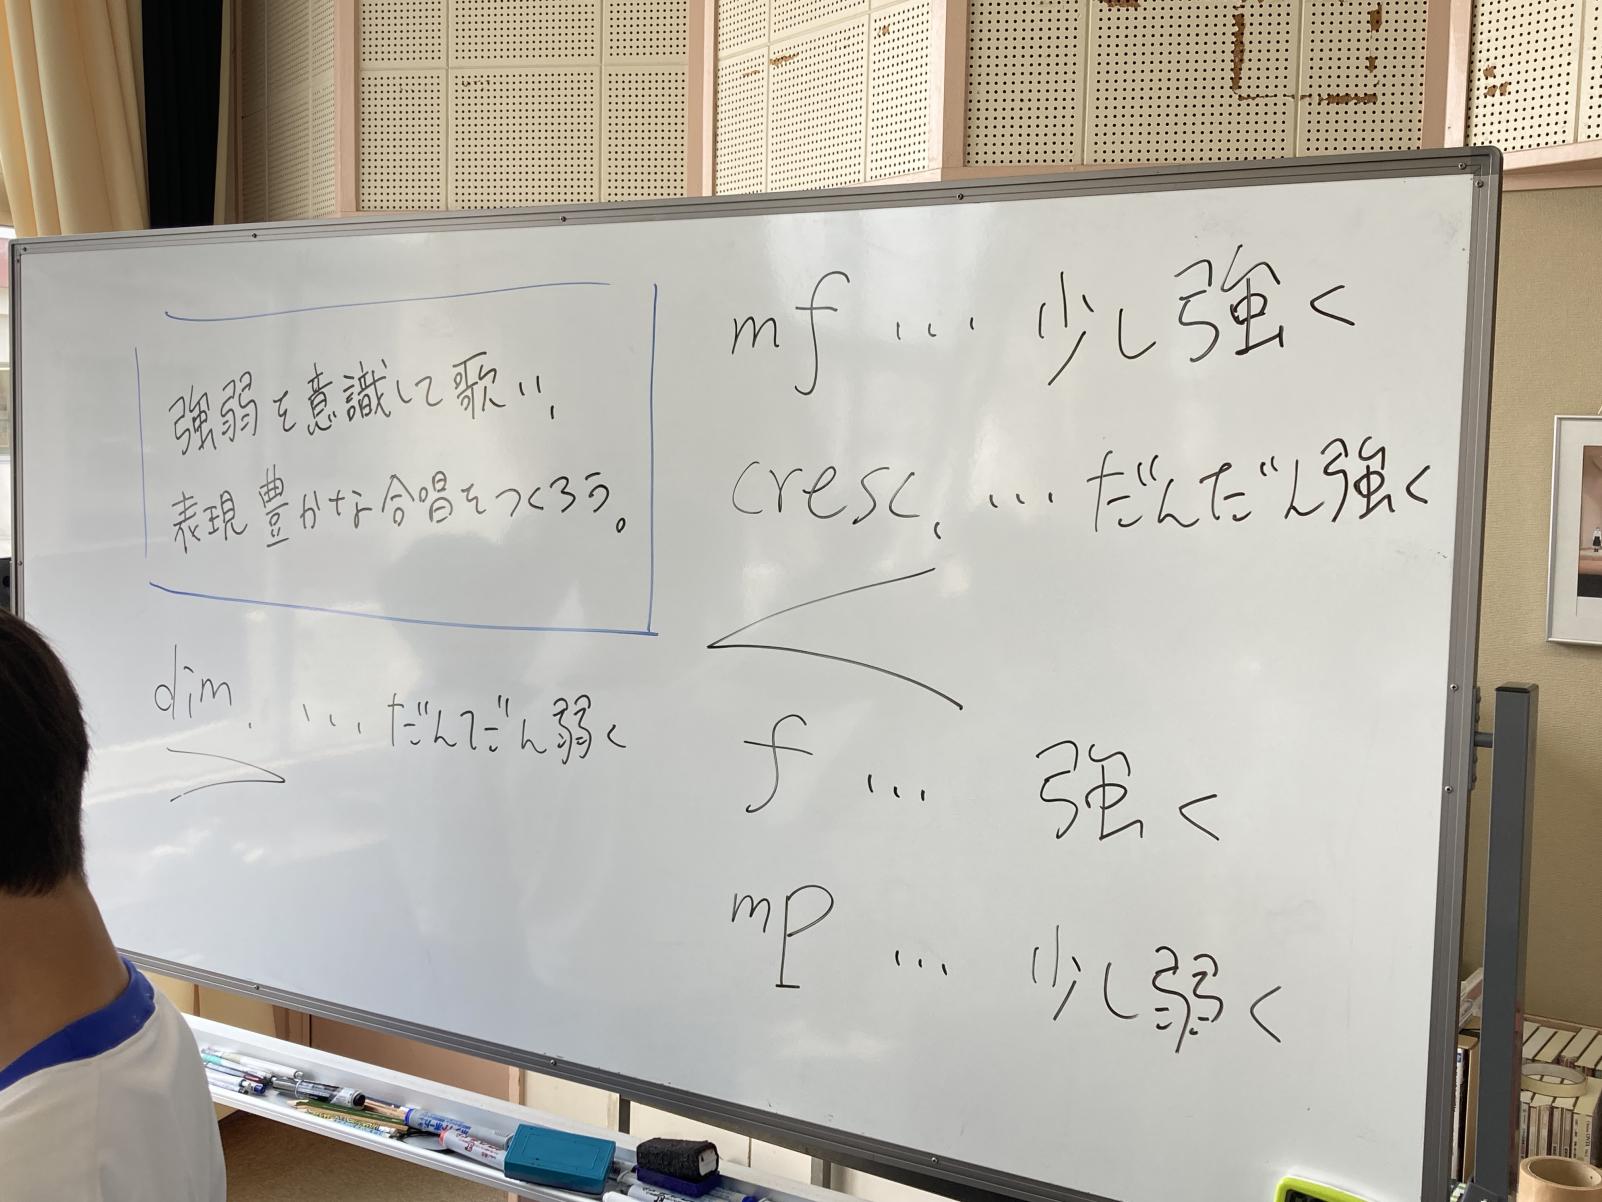 強弱を意識して歌い、
表現豊かな合唱をつくろう。
dim. ... だんだん弱く
mf ... 少し強く
cresc. ... だんだん強く
f ... 強く
mp ... 少し弱く